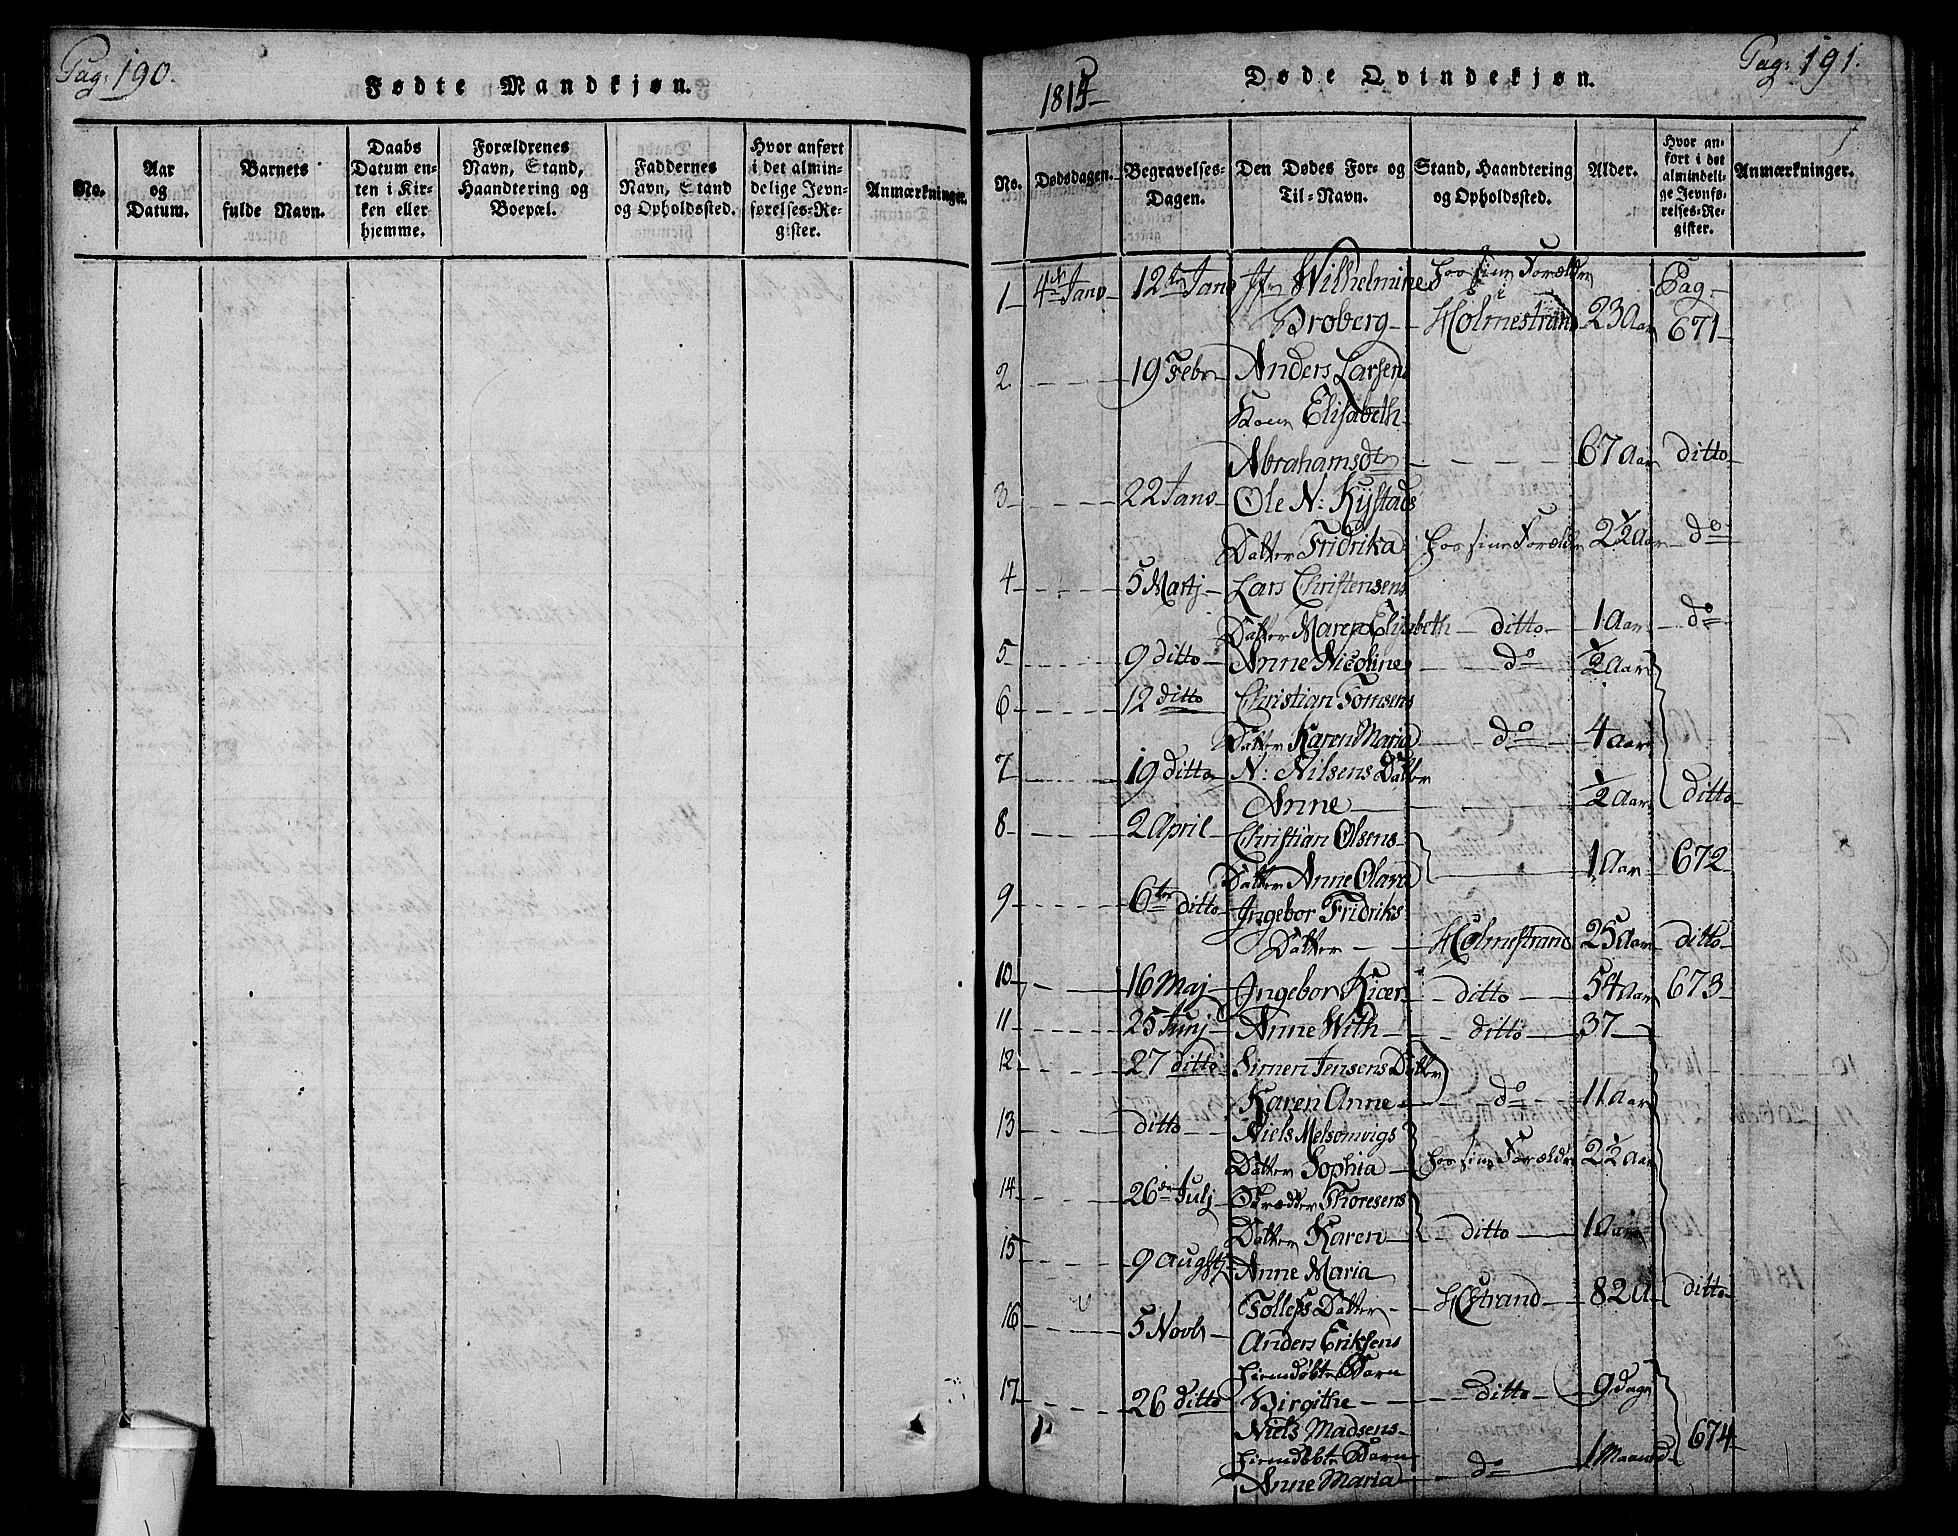 Pag: 190.
Fødte Mandkjøn.
No.
Aar
og
Datum.
Barnets
fulde Navn.
Daabs
Datum en-
ten i Kir-
ken eller
hjemme.
Forældrenes
Navn, Stand,
Haandtering og
Boepæl.
Faddernes
Navn, Stand
og Opholdssted.
Hvor anført
i det almin-
delige Jevn-
førelses-Re-
gister.
Anmærkninger.
Pag: 191.
Døde Qvindekjøn.
No.
Dødsdagen.
Begravelses-
Dagen.
Den Dødes For- og
Til-Navn.
Stand, Haandtering
og Opholdssted.
Alder.
Hvor an-
ført i det
almindeli-
ge Jevnfø-
relses-Re-
gister.
Anmærkninger.
1 4de Janv 12te Janv Jfr Wilhelmine hos sine Forældre Pag
Broberg Holmestrand 23 Aar 671
2 19 Febr Anders Larsens
Kone Elisabeth
Abrahamsdtr 67 Aar ditto
3 22 Janv Ole N: Kystads
Datter Fridrika hos sine Forældre 2½ Aar do
4 5 Martj Lars Christensens
Datter Maren Elisabeth ditto 1 Aar do
5 9 ditto Anne Nicoline do ½ Aar
6 12 ditto Christian Tomsens
Datter Karen Maria do 4 Aar
7 19 ditto N: Nilsens Datter
Anne ½ Aar ditto
8 2 April Christian Olsens
Datter Anne Olava 1 Aar 672
9 6te ditto Ingebor Fridriks
Datter Holmestrand 25 Aar ditto
10 16 Maj Ingebor Kicer ditto 54 Aar 673
11 25 Junj Anne With ditto 37
12 27 ditto Simen Jensens Datter
Karen Anne do 11 Aar
13 ditto Niels Melsomvigs
Datter Sophia hos sine Forældre 2½ Aar
14 26de Julj Thoresens
Datter Karen ditto 1 Aar
15 9 Augstj Anne Maria
Tollefs Datter HStrand 82 A ditto
16 5 Novb Anders Eriksens
hiemdøbte Barn
Birgithe ditto 9 Dage
17 26 ditto Niels Madsens
hiemdøbte Barn 674
Anne Maria do 1 Maaned